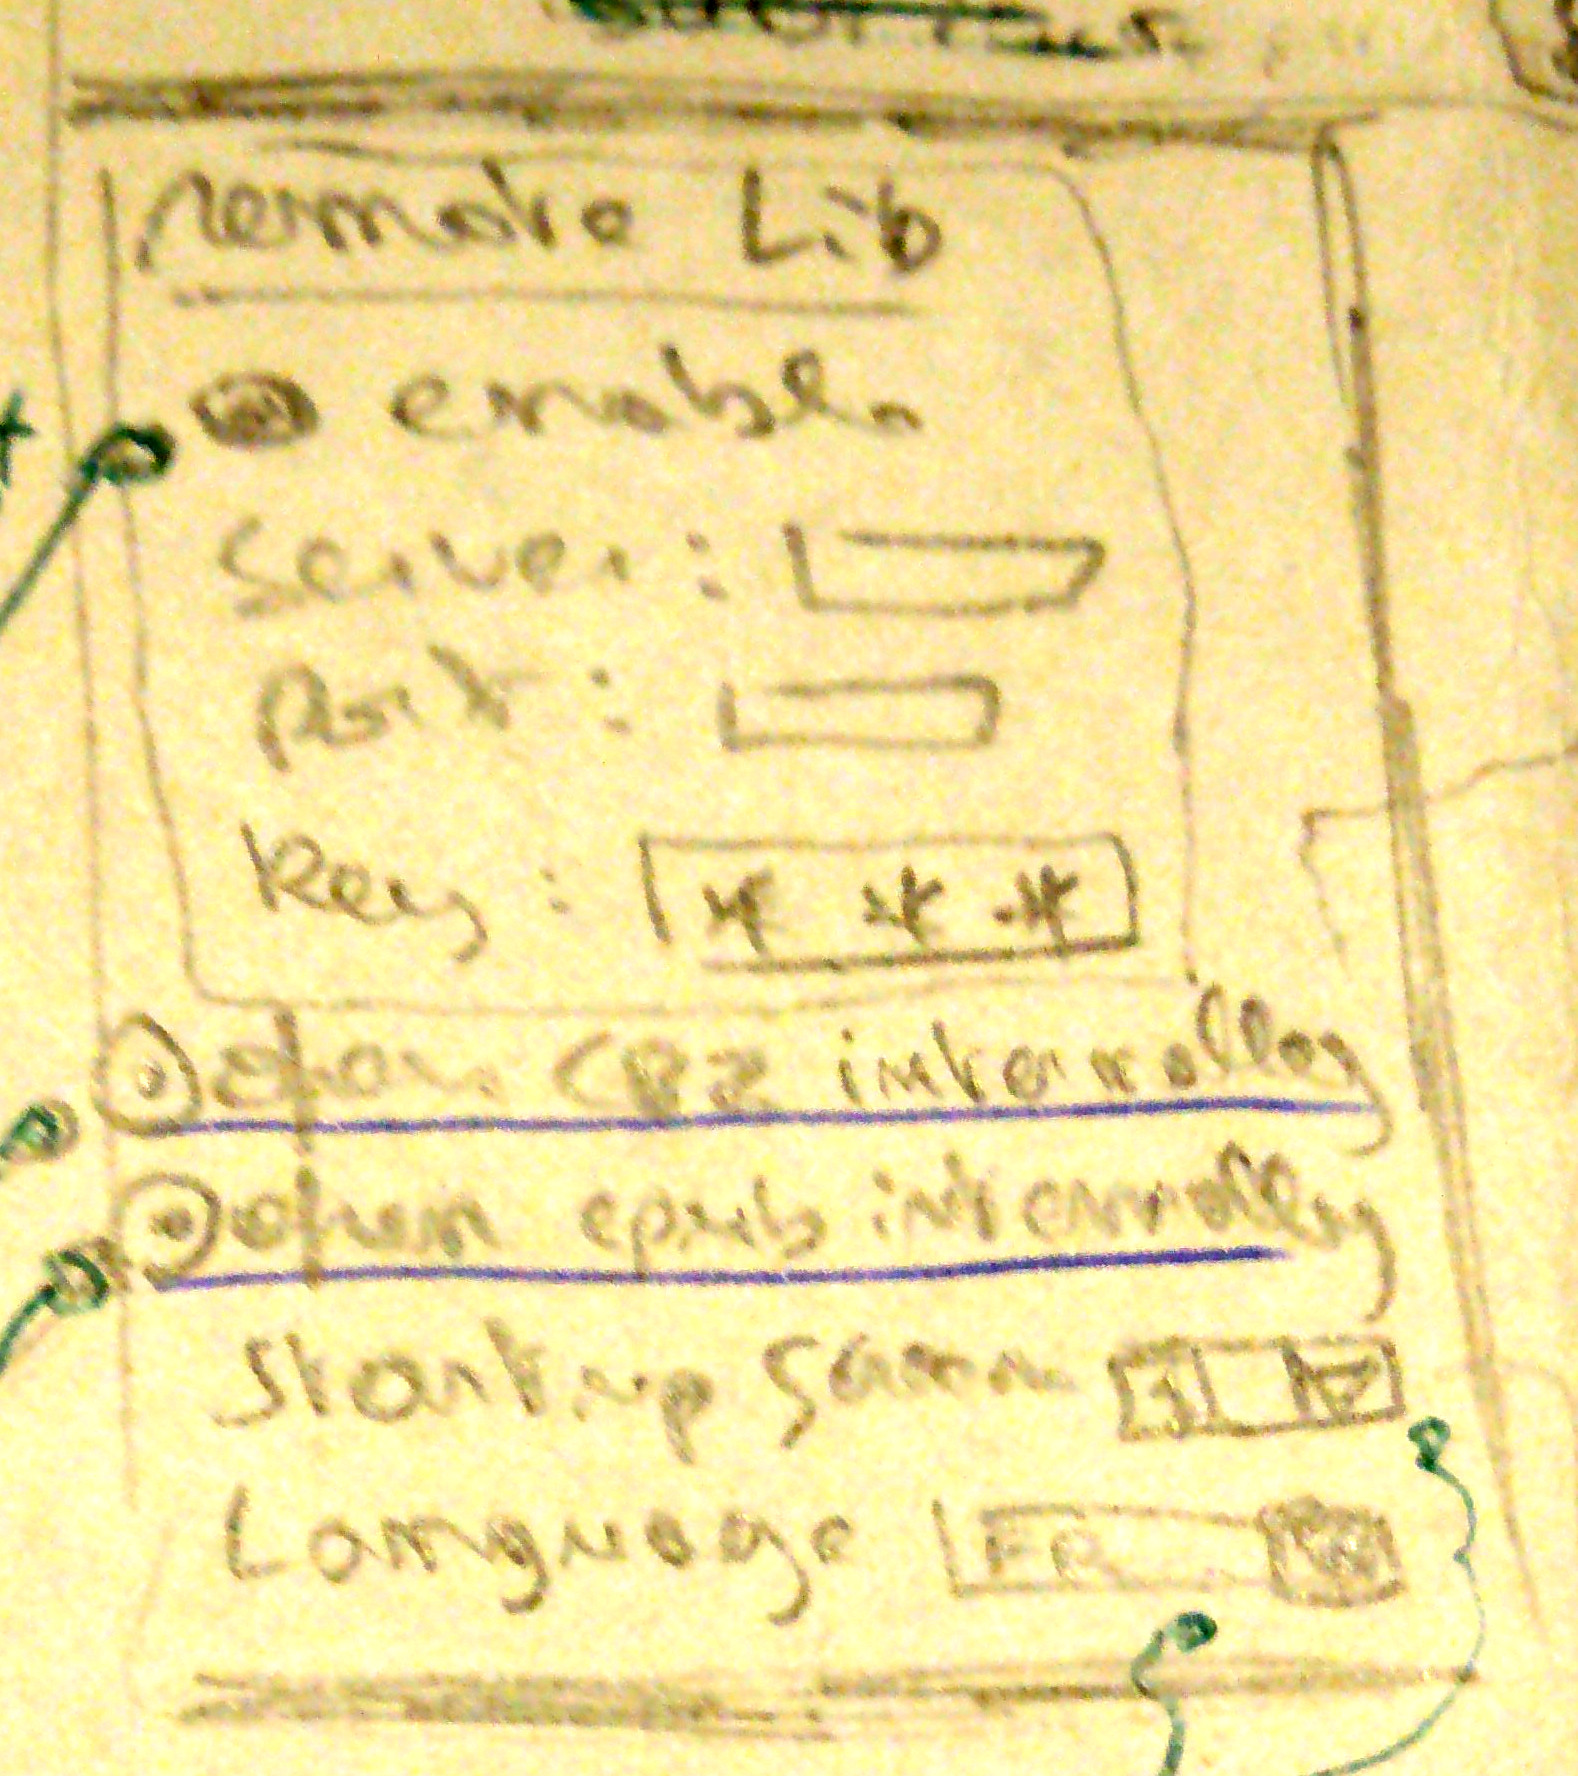 remote Lib
enable
Server :
Port :
Key : * * *
open CBZ internally
open epub internally
Starting Screen 1
Language FR